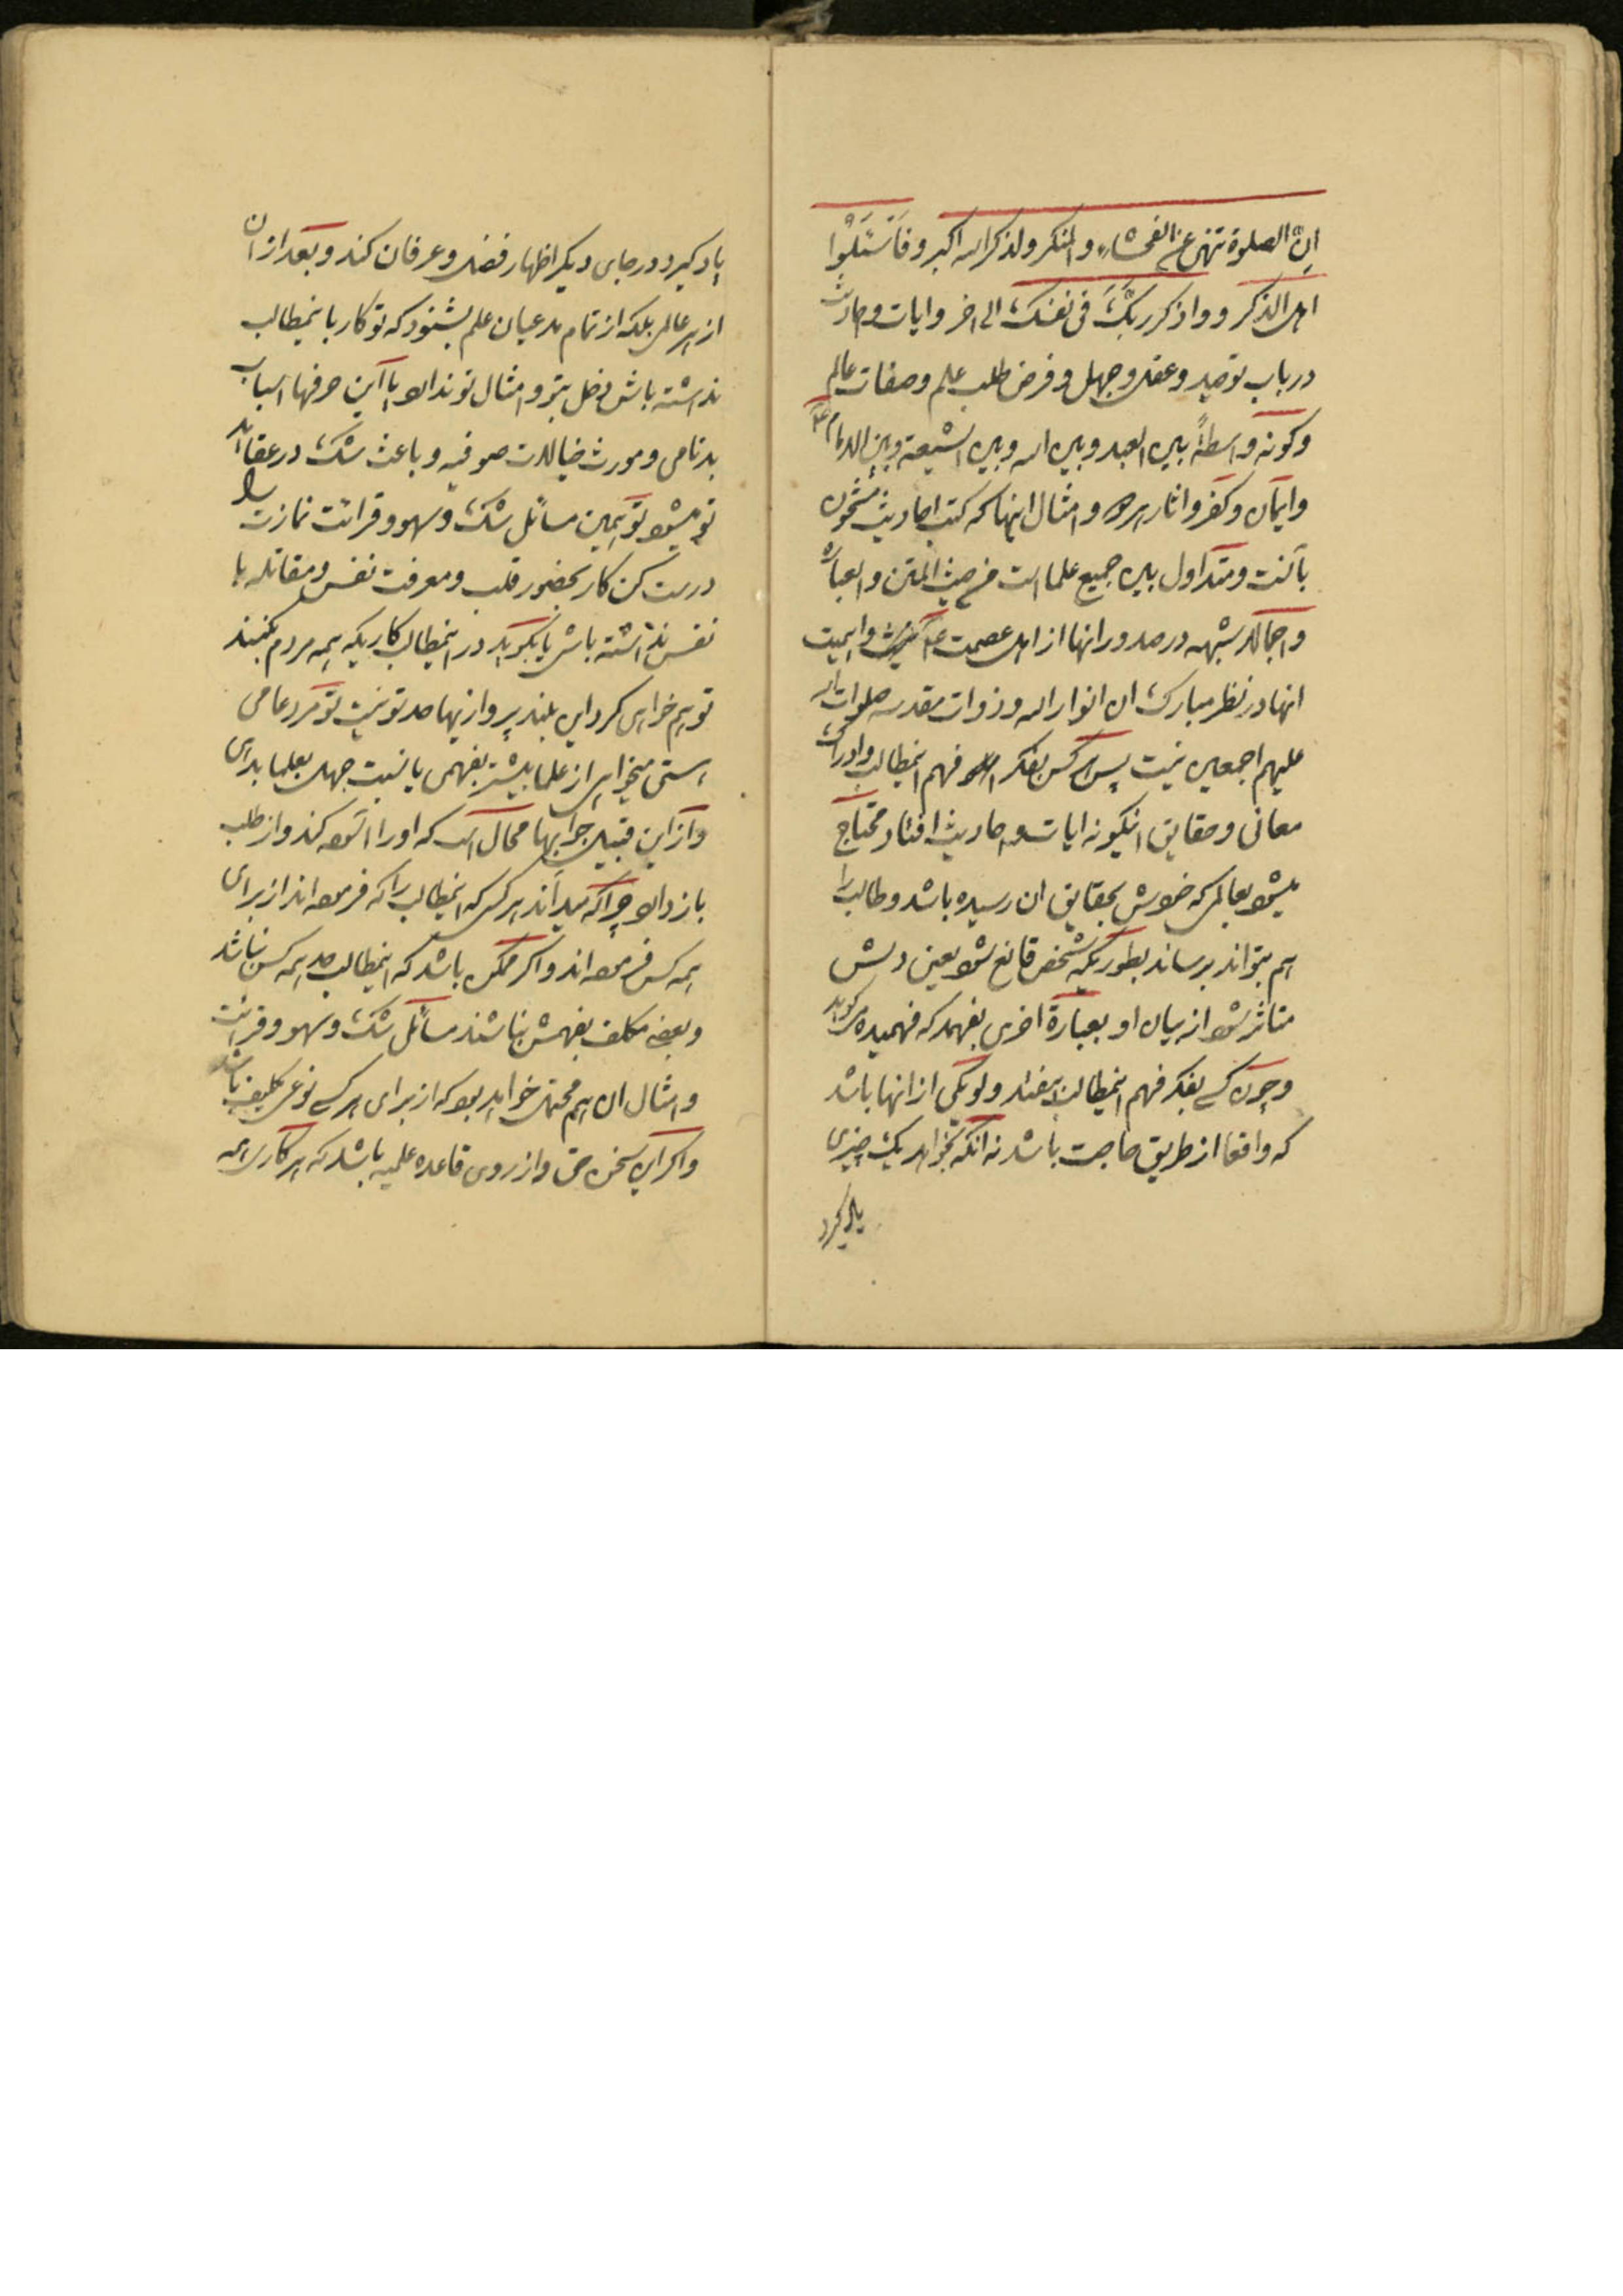 ان الصلوة تنهی عن الفحشاء والمنکر ولذکر الله اکبر و فاسئلوا
اهل الذکر و واذکر ربک فی نفسک الی اخر وایات واحادیث
در باب توحید وعقل وجهل وفرض طلب علم وصفات عالم
وکونه واسطة بین العبد وبین الله وبین الشیعة وبین الامام ع
وایمان وکفر واثار هر و امثال اینها که کتب احادیث مشحون
بآنست ومتداول بین جمیع علما است من حیث المتن والعبارة
واجمالا شبهه در صدور انها از اهل عصمت نیست واهمیت
انها در نظر مبارک ان انوار اله وذوات مقدسه صلوات الله
علیهم اجمعین نیست پس هر کس بفکر فهم اینمطالب وادراک
معانی وحقایق اینگونه ایات واحادیث افتاد محتاج
میشود بعالمی که خودش بحقایق ان رسیده باشد وطالب را
هم بتواند برساند بطوریکه شخص قانع شود یعنی دلش
متاثر شود از بیان او بعبارة اخری بفهمد که فهمیده میگوید
وچون کسی بفکر فهم اینمطالب بیفتد ولو یکی از انها باشد
که واقعا از طریق حاجت باشد نه انکه بخواهد یک چیزی
یاد گیرد
یاد کیرد ودر جای دیگر اظهار فضل وعرفان کند وبعد از ان
از هر عالمی بلکه از تمام مدعیان علم بشنود که تو کار باینمطالب
نداشته باش دخل بتو وامثال تو ندارد یا این حرفها اسباب
بدنامی ومورث خیالات صوفیه وباعث شک در عقاید
تو میشود تو همین مسائل شک وسهو وقرائت نمازت را
درست کن کار بحضور قلب ومعرفت نفس ومقاتله با
نفس نداشته باش یا بگوید در اینمطالب کاریکه همه مردم میکنند
تو هم خواهی کرد این بلند پروازیها حد تو نیست تو مرد عامی
هستی میخواهی از علما بیشتر بفهمی یا نسبت جهل بعلما بدهی
واز این قبیل جوابها محال است که او را اسوده کند واز طلب
باز دارد چرا که میداند هر کس که اینمطالب را که فرموده اند از برای
همه کس فرموده اند واگر ممکن باشد که اینمطالب حد همه کس نباشد
وبعضی مکلف بفهمش نباشند مسائل شک وسهو وقرائت
وامثال ان هم محتمل خواهد بود که از برای هر کسی نوعی تکلیف باشد
واگر این سخن حق واز روی قاعده علمیه باشد که هر کاری همه